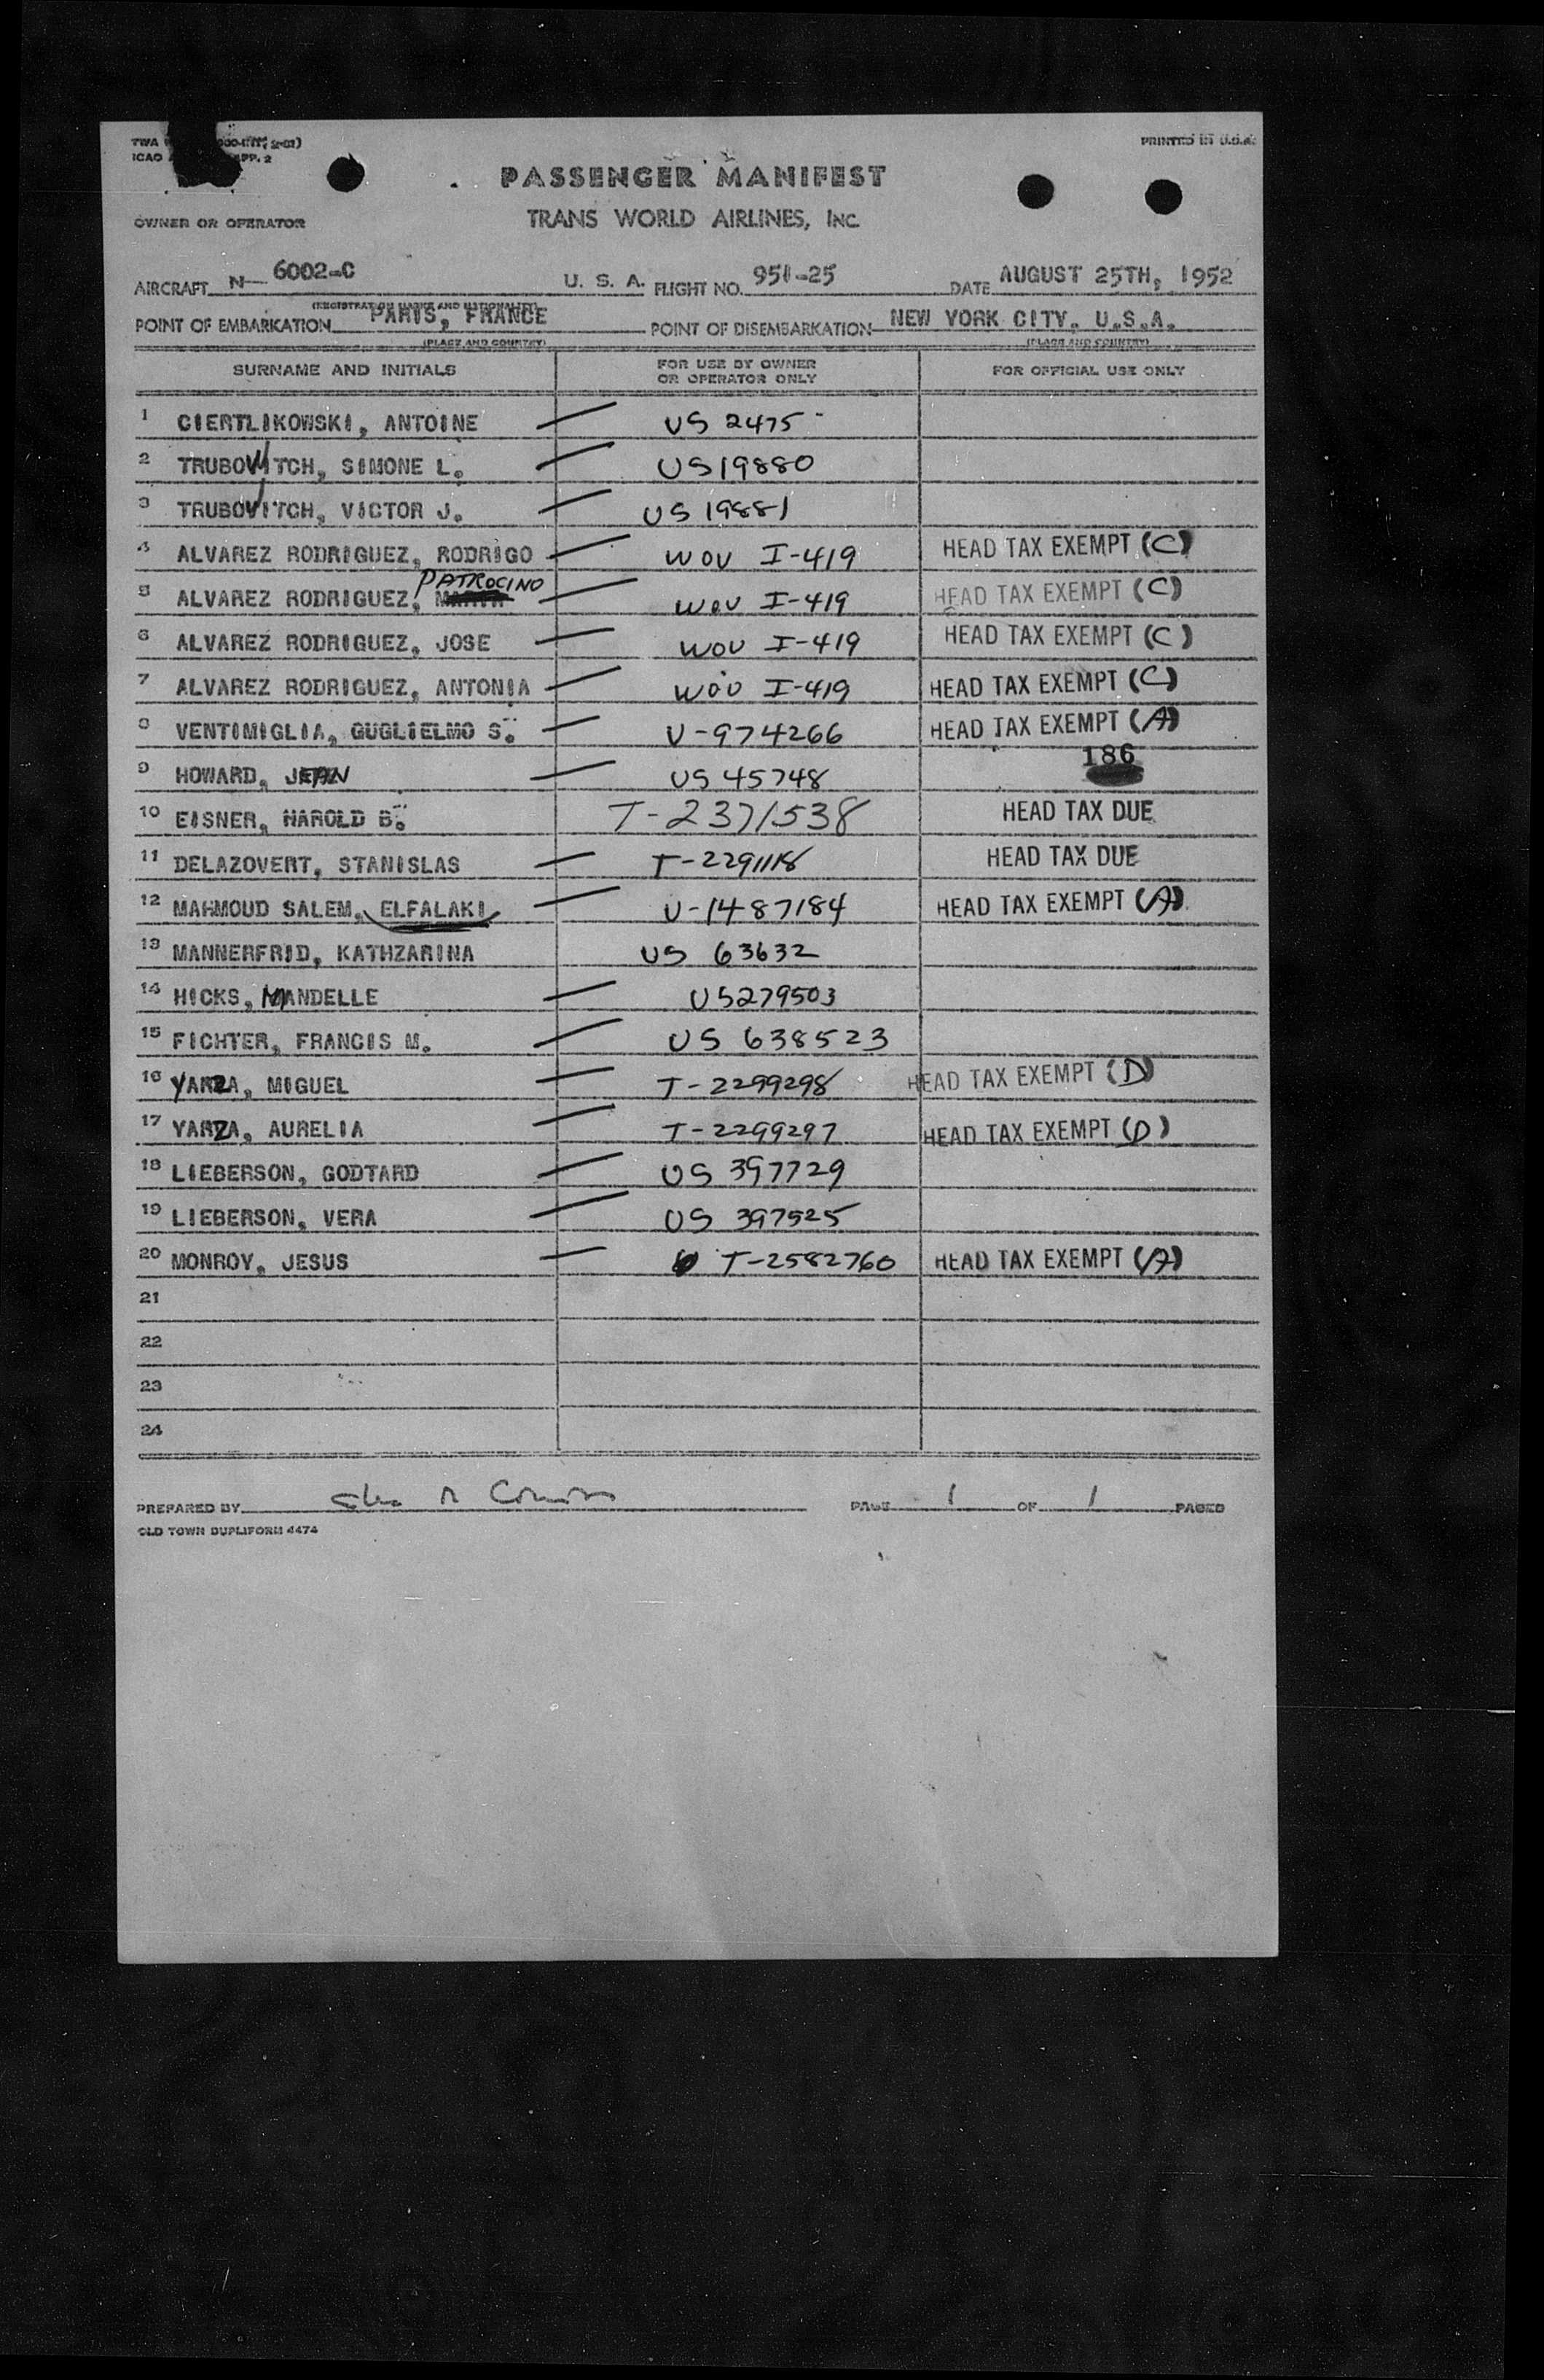 TWA
ICAO APP. 2
PRINTED IN U.S.A.
PASSENGER MANIFEST
OWNER OR OPERATOR TRANS WORLD AIRLINES, INC.
AIRCRAFT N- 6002-C U. S. A. FLIGHT NO. 951-25 DATE AUGUST 25TH, 1952
(REGISTRATION MARKS AND NATIONALITY)
POINT OF EMBARKATION PARIS, FRANCE POINT OF DISEMBARKATION NEW YORK CITY, U.S.A.
(PLACE AND COUNTRY) (PLACE AND COUNTRY)
SURNAME AND INITIALS FOR USE BY OWNER OR OPERATOR ONLY FOR OFFICIAL USE ONLY
1 CIERTLIKOWSKI, ANTOINE — US 2475
2 TRUBOWITCH, SIMONE L. — US 19880
3 TRUBOVITCH, VICTOR J. — US 19881
4 ALVAREZ RODRIGUEZ, RODRIGO — WOV I-419 HEAD TAX EXEMPT (C)
5 ALVAREZ RODRIGUEZ, PATROCINO — WOV I-419 HEAD TAX EXEMPT (C)
6 ALVAREZ RODRIGUEZ, JOSE — WOV I-419 HEAD TAX EXEMPT (C)
7 ALVAREZ RODRIGUEZ, ANTONIA — WOV I-419 HEAD TAX EXEMPT (C)
8 VENTIMIGLIA, GUGLIELMO S. — V-974266 HEAD TAX EXEMPT (A)
9 HOWARD, JEAN — US 45748 186
10 EISNER, HAROLD B. T-2371538 HEAD TAX DUE
11 DELAZOVERT, STANISLAS — T-2291118 HEAD TAX DUE
12 MAHMOUD SALEM, ELFALAKI — V-1487184 HEAD TAX EXEMPT (A)
13 MANNERFRID, KATHZARINA US 63632
14 HICKS, MANDELLE — US279503
15 FICHTER, FRANCIS M. — US 638523
16 YARZA, MIGUEL — T-2299298 HEAD TAX EXEMPT (D)
17 YARZA, AURELIA — T-2299297 HEAD TAX EXEMPT (D)
18 LIEBERSON, GODTARD — US 397729
19 LIEBERSON, VERA — US 397525
20 MONROY, JESUS — T-2582760 HEAD TAX EXEMPT (A)
21
22
23
24
PREPARED BY PAGE 1 OF 1 PAGES
OLD TOWN DUPLIFORM 4474